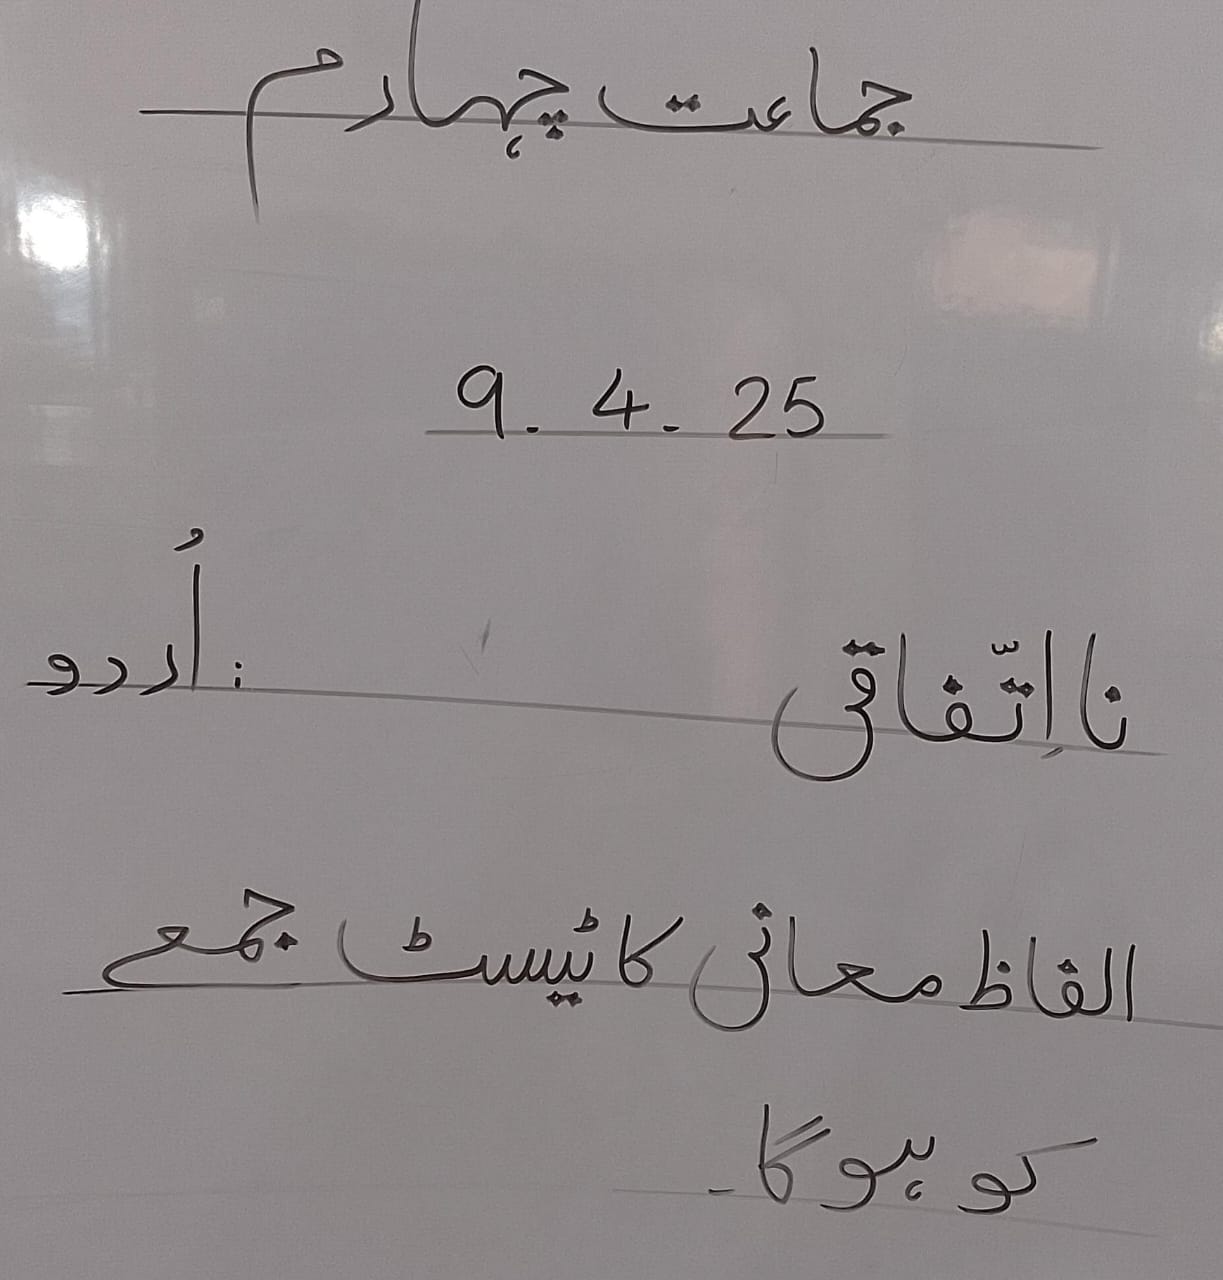 جماعت چہارم
9.4.25
نا اِتّفاقی :اُردو
الفاظ معانی کا ٹیسٹ جمعے
کو ہوگا۔